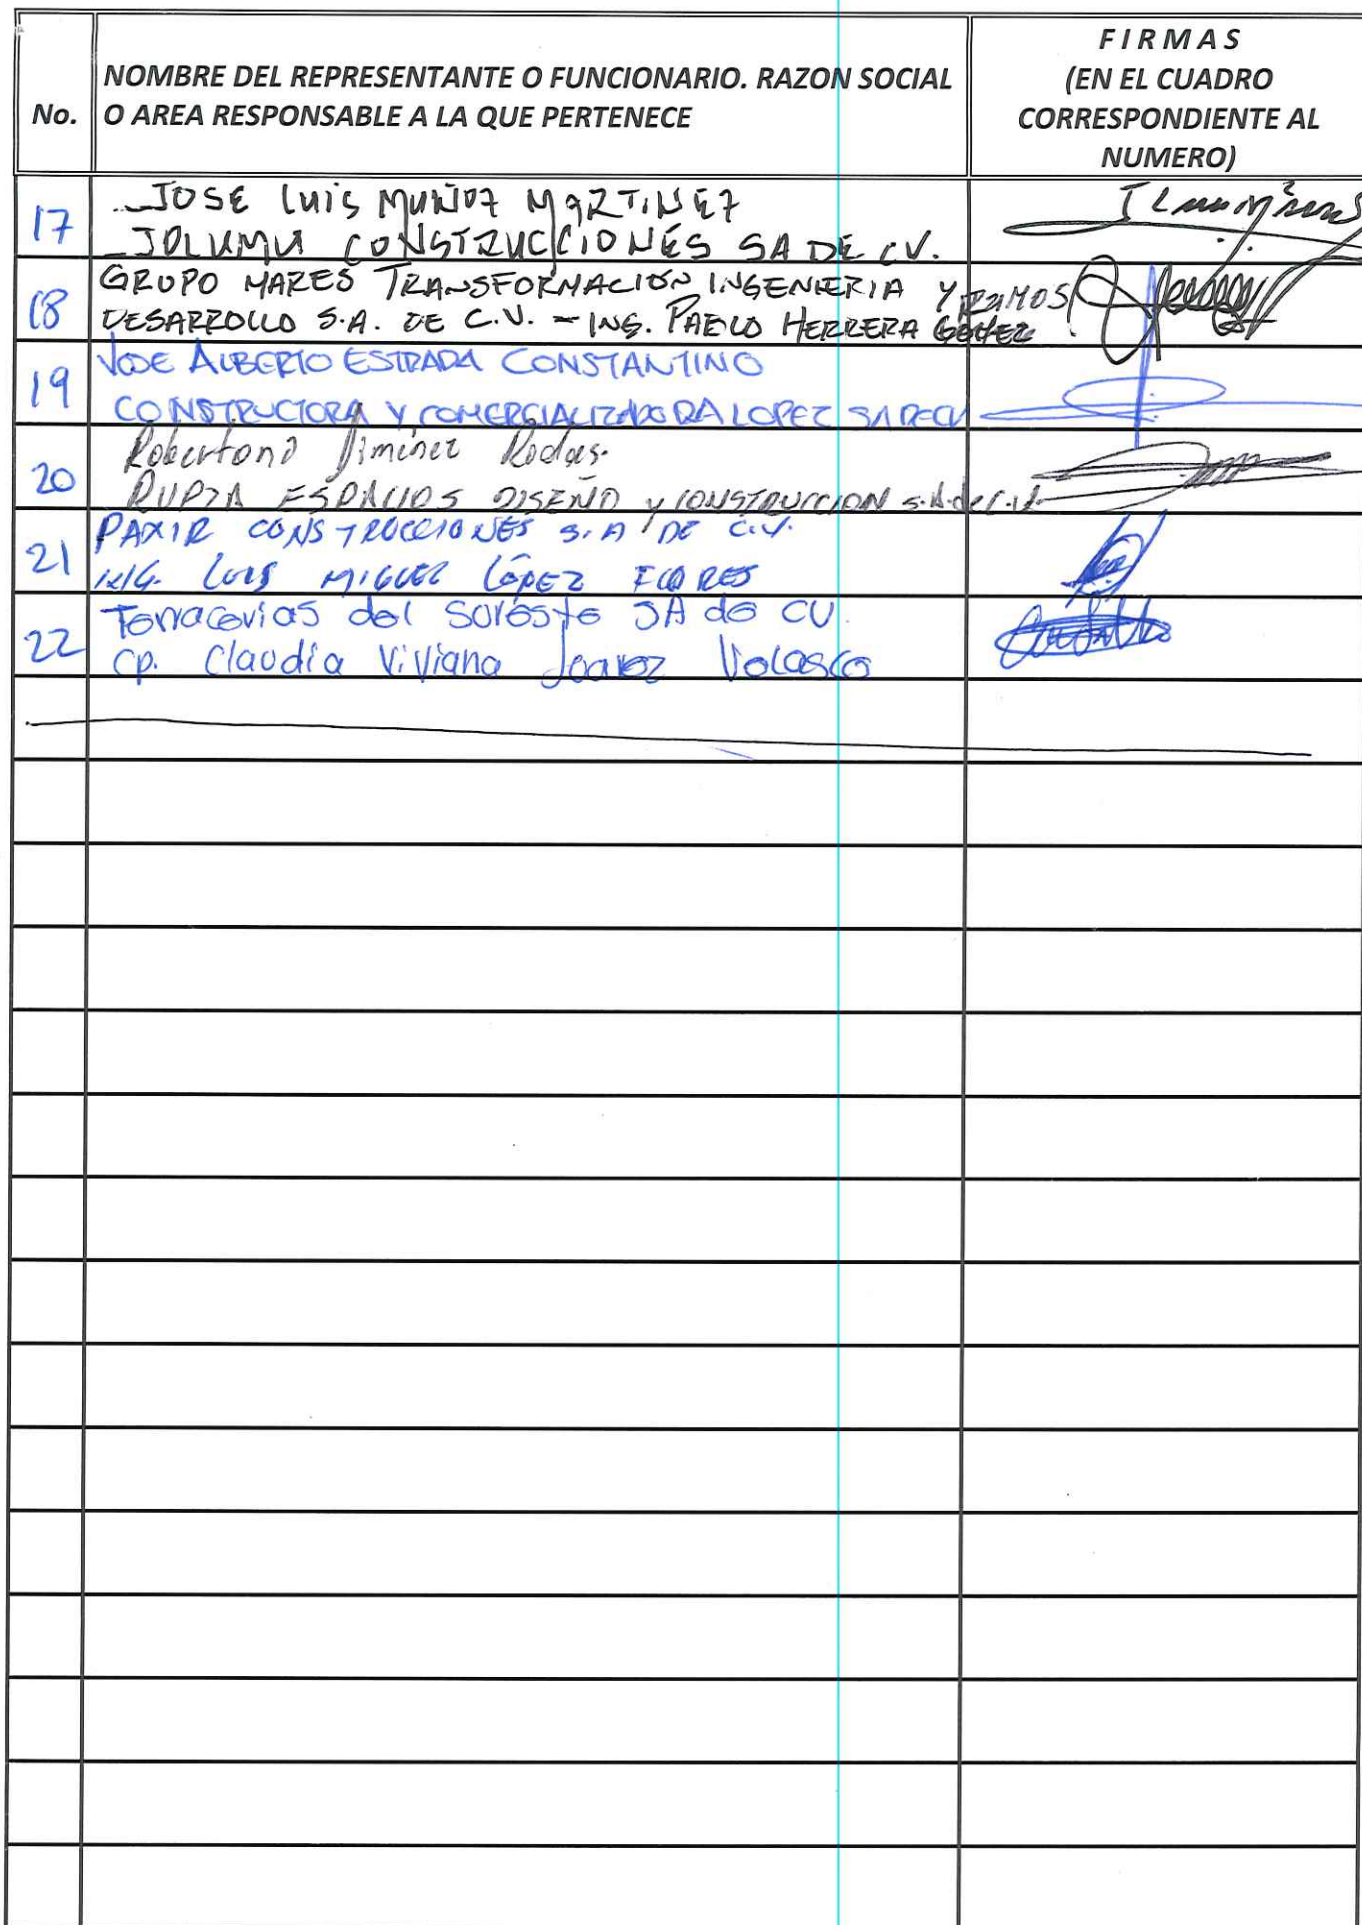 No.
NOMBRE DEL REPRESENTANTE O FUNCIONARIO. RAZON SOCIAL
O AREA RESPONSABLE A LA QUE PERTENECE
FIRMAS
(EN EL CUADRO
CORRESPONDIENTE AL
NUMERO)
17
JOSE LUIS MUÑOZ MARTINEZ
JOLUMU CONSTRUCCIONES SA DE CV.
18
GRUPO MARES TRANSFORMACIÓN INGENIERIA Y
DESARROLLO S.A. DE C.V. - ING. PABLO HERRERA RAMOS
19
JOSE ALBERTO ESTRADA CONSTANTINO
CONSTRUCTORA Y COMERCIALIZADORA LOPEZ SA DE CV
20
Jiménez Rodas.
ESPACIOS DISEÑO Y CONSTRUCCION S.A. de C.V.
21
PAXIR CONSTRUCCIONES S.A DE C.V.
ING. LUIS MIGUEL LÓPEZ FLORES
22
Terracerias del Sureste SA de CV
CP. Claudia Viviana Juarez Velasco